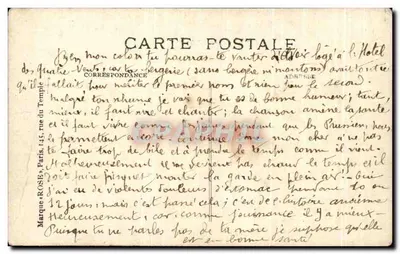 Eh bien mon colon tu pourras te vanter d'avoir logé à l'Hotel
CARTE POSTALE
des Quatre Vents, car ta bergerie (sans bergère ni moutons) avait
CORRESPONDANCE
ADRESSE
qu'il fallait pour mériter le premier nom et rien pour le second.
malgré ton rhume je vois que tu es de bonne humeur, tant
mieux, il faut rire et chanter; la chanson amène la santé
et il faut vivre que les Prussiens, nous
le permettre mon cher n'ne pas
te faire trop de bile et à prendre le temps comme il vient.
Malheureusement il ne devient pas chaud le temps et il
faut monter la garde en plein air - oui
j'ai eu de violentes douleurs d'estomac pendant 10 ou
12 jours mais c'est passé cela; c'est de l'histoire ancienne
Heureusement; car comme jouissance il y a mieux.
Puisque tu ne parles pas de ta mère je suppose qu'elle
est en bonne santé
Marque "ROSE", Paris, 141, rue du Temple